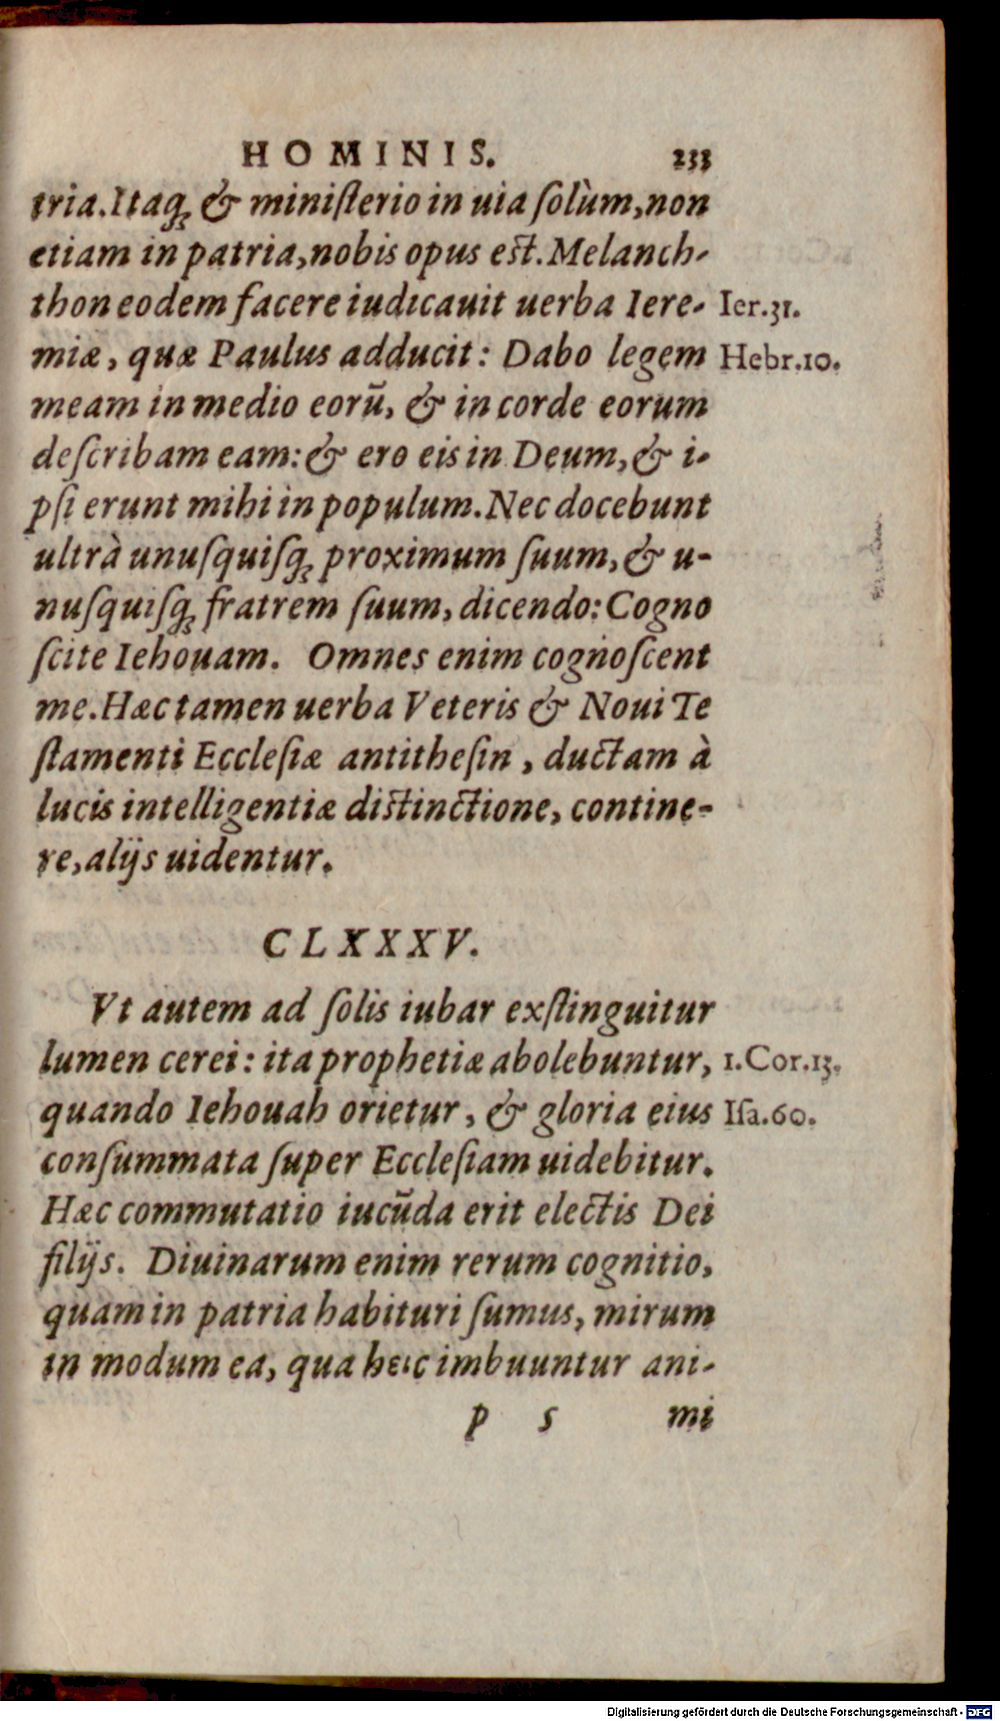 HOMINIS. 233
tria. Itaq; & ministerio in uia solùm, non
etiam in patria, nobis opus est. Melanch-
thon eodem facere iudicauit uerba Iere- Ier. 31.
miæ, quæ Paulus adducit: Dabo legem Hebr. 10.
meam in medio eorũ, & in corde eorum
describam eam: & ero eis in Deum, & i-
psi erunt mihi in populum. Nec docebunt
ultrà unusquisq; proximum suum, & u-
nusquisq; fratrem suum, dicendo: Cogno
scite Iehouam. Omnes enim cognoscent
me. Hæc tamen uerba Veteris & Noui Te
stamenti Ecclesiæ antithesin, ductam à
lucis intelligentiæ distinctione, contine-
re, alijs uidentur.
CLXXXV.
Vt autem ad solis iubar exstinguitur
lumen cerei: ita prophetiæ abolebuntur, 1. Cor. 13.
quando Iehouah orietur, & gloria eius Isa. 60.
consummata super Ecclesiam uidebitur.
Hæc commutatio iucũda erit electis Dei
filijs. Diuinarum enim rerum cognitio,
quam in patria habituri sumus, mirum
in modum ea, qua heic imbuuntur ani-
p 5 mi
Digitalisierung gefördert durch die Deutsche Forschungsgemeinschaft - DFG